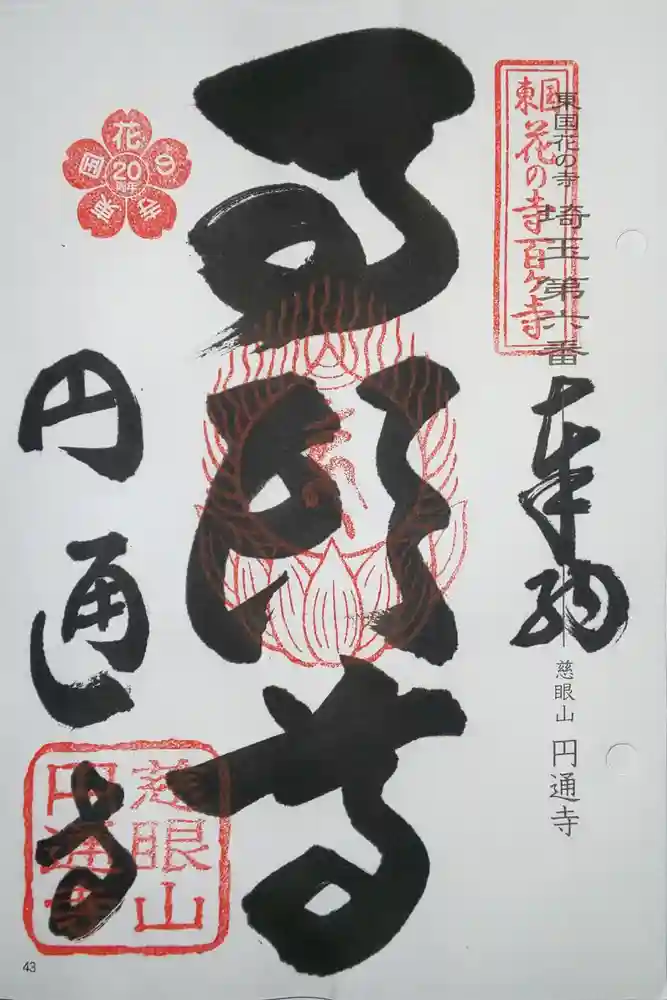 東国花の寺百ヶ寺
東国花の寺 埼玉第六番
奉拝
慈眼山 円通寺
東国花の寺
20
周年
円通寺
慈眼山
円通寺
43